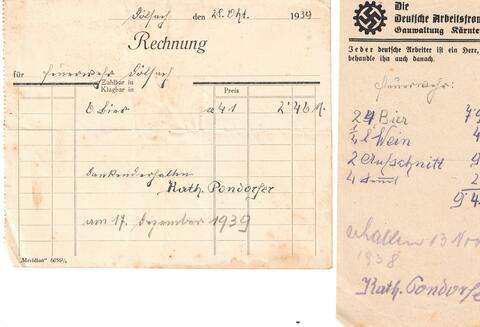 Dölsach den 28. Okt. 1939
Rechnung
für Feuerwehr Dölsach
Zahlbar in
Klagbar in
Preis
6 Bier a 41 2'46
dankend erhalten
Kath. Pondorfer
am 17. Dezember 1939
„Meridian" 6050/
Die
Deutsche Arbeitsfron
Gauwaltung Kärnte
Jeder deutsche Arbeiter ist ein Herr,
behandle ihn auch danach.
Feuerwehr:
24 Bier
1/4 l Wein
2 Aufschnitt
4
9'4
erhalten 13 Nov
1938
Kath. Pondorfer